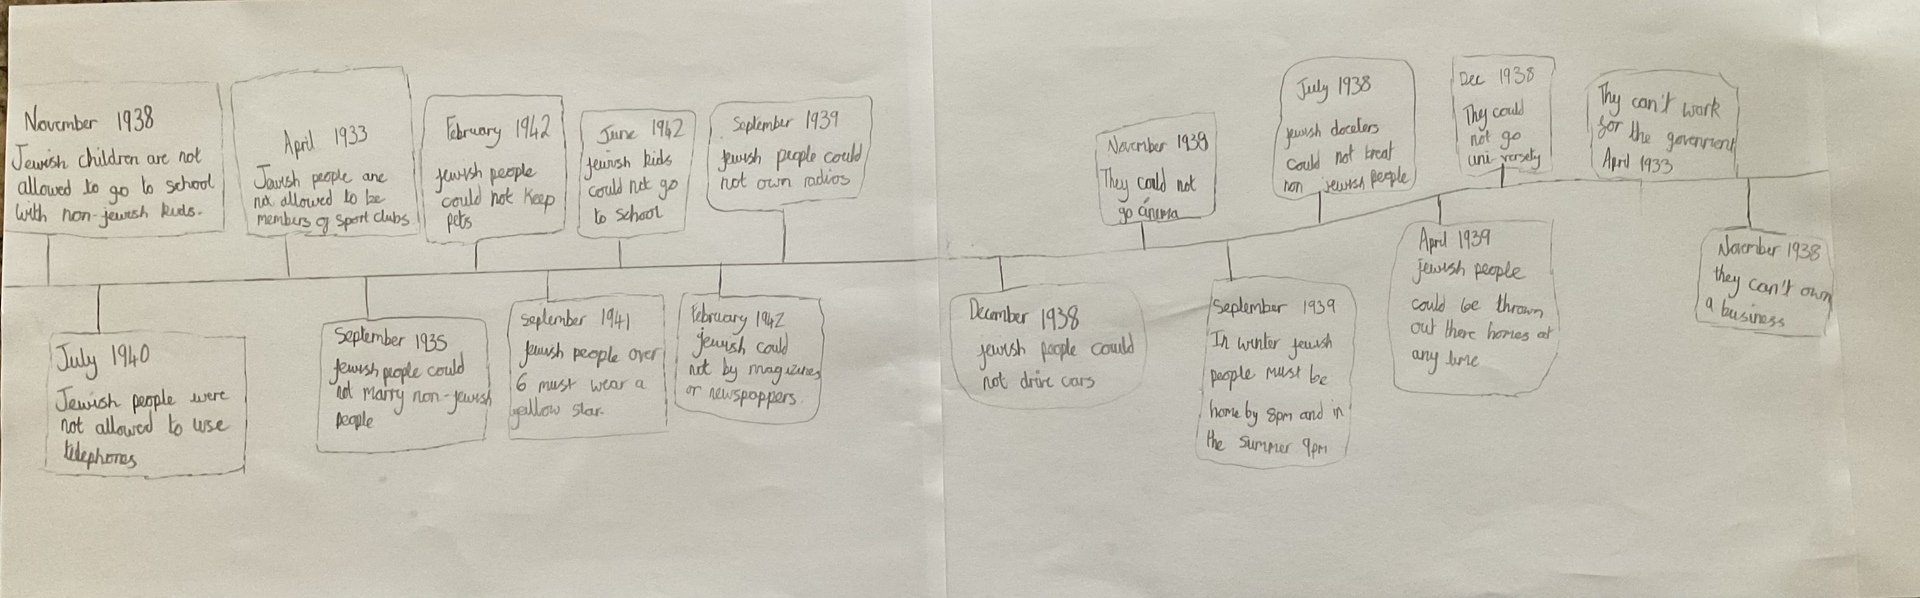 November 1938
Jewish children are not
allowed to go to school
with non-jewish kids.
April 1933
Jewish people are
not allowed to be
members of sport clubs
February 1942
jewish people
could not keep
pets
June 1942
jewish kids
could not go
to school
September 1939
jewish people could
not own radios
November 1938
They could not
go cinema
July 1938
jewish docters
could not treat
non jewish people
Dec 1938
They could
not go
uni-versety
Thy can't work
for the government
April 1933
July 1940
Jewish people were
not allowed to use
telephones
September 1935
jewish people could
not marry non-jewish
people
September 1941
jewish people over
6 must wear a
yellow star.
February 1942
jewish could
not by magizines
or newspappers
December 1938
jewish people could
not drive cars
September 1939
In winter jewish
people must be
home by 8pm and in
the summer 9pm
April 1939
jewish people
could be thrown
out there homes at
any time
November 1938
they can't own
a business